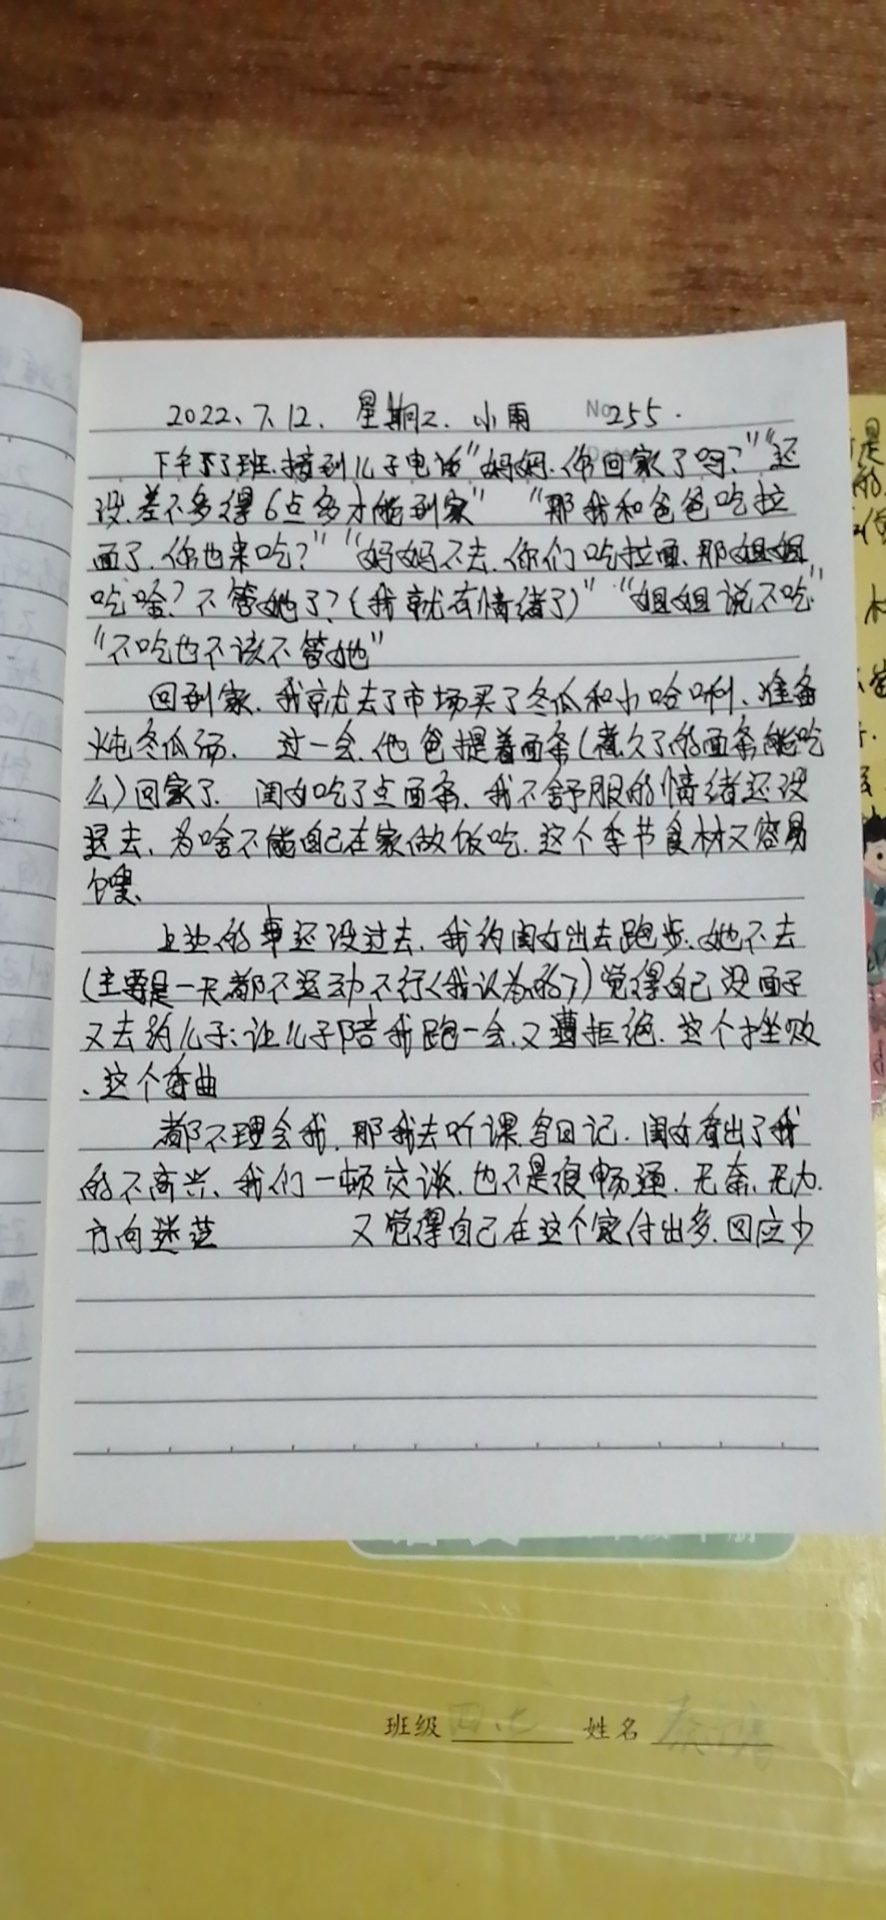 2022、7.12. 星期二. 小雨 No 255.
Date
下午下了班.接到儿子电话“妈妈.你回家了吗？”“还
没.差不多得6点多才能到家” “那我和爸爸吃拉
面了.你也来吃？”“妈妈不去.你们吃拉面、那姐姐
吃啥？不管她了？(我就有情绪了)”“姐姐说不吃”
“不吃也不该不管她”
回到家.我就去了市场买了冬瓜和小哈喇、准备
炖冬瓜汤. 过一会.他爸提着面条(煮久了的面条能吃
么)回家了. 闺女吃了点面条、我不舒服的情绪还没
退去、为啥不能自己在家做饭吃.这个季节食材又容易
馊、
上边的事还没过去、我约闺女出去跑步.她不去
(主要是一天都不运动不行<我认为的>)觉得自己没面子
又去约儿子:让儿子陪我跑一会.又遭拒绝.这个挫败
、这个委曲
都不理会我.那我去听课写日记.闺女看出了我
的不高兴、我们一顿交谈.也不是很畅通.无奈.无力.
方向迷茫 又觉得自己在这个家付出多.回应少
班级 四.七 姓名